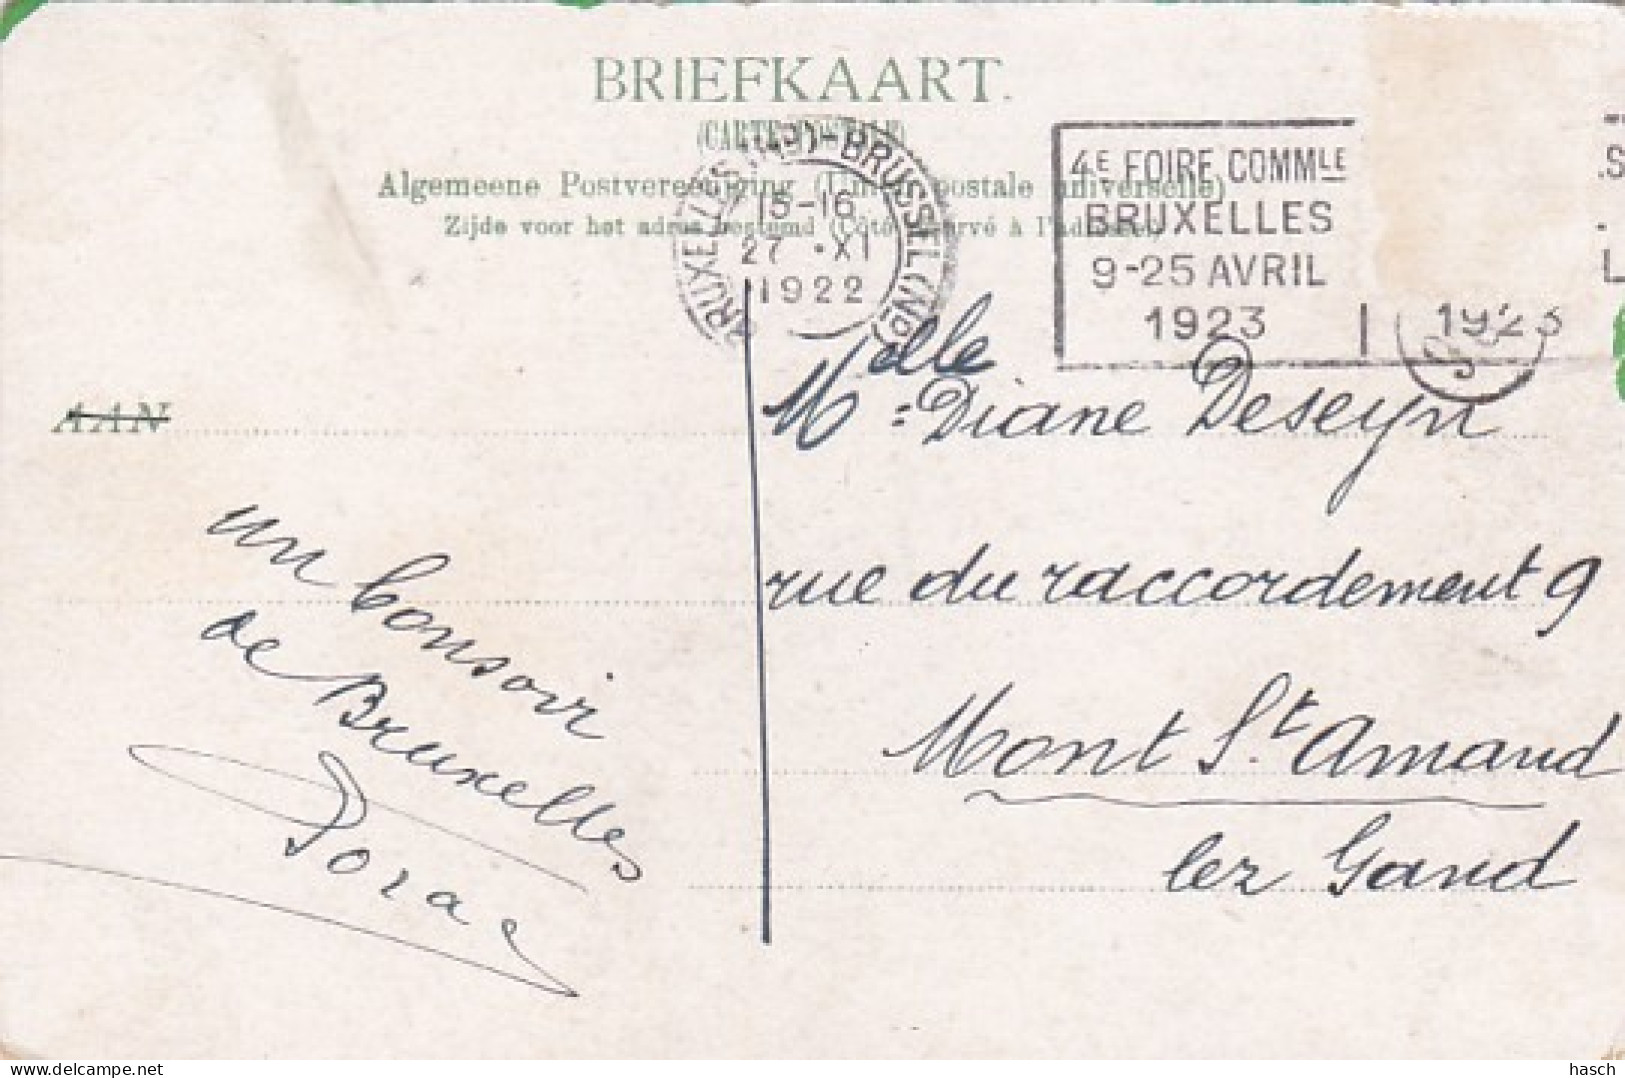 BRIEFKAART.
(CARTE POSTALE)
Algemeene Postvereeniging (Union postale universelle)
Zijde voor het adres bestemd (Côté réservé à l'adresse)
BRUXELLES BRUSSEL (NORD)
15-16
27 • XI
1922
4E FOIRE COMMLE
BRUXELLES
9-25 AVRIL
1923
1923
AAN
Melle Diane Deseyn
rue du raccordement 9
Mont St. Amand
lez Gand
un bonsoir
de Bruxelles
Dora
delcampe.net
hasch